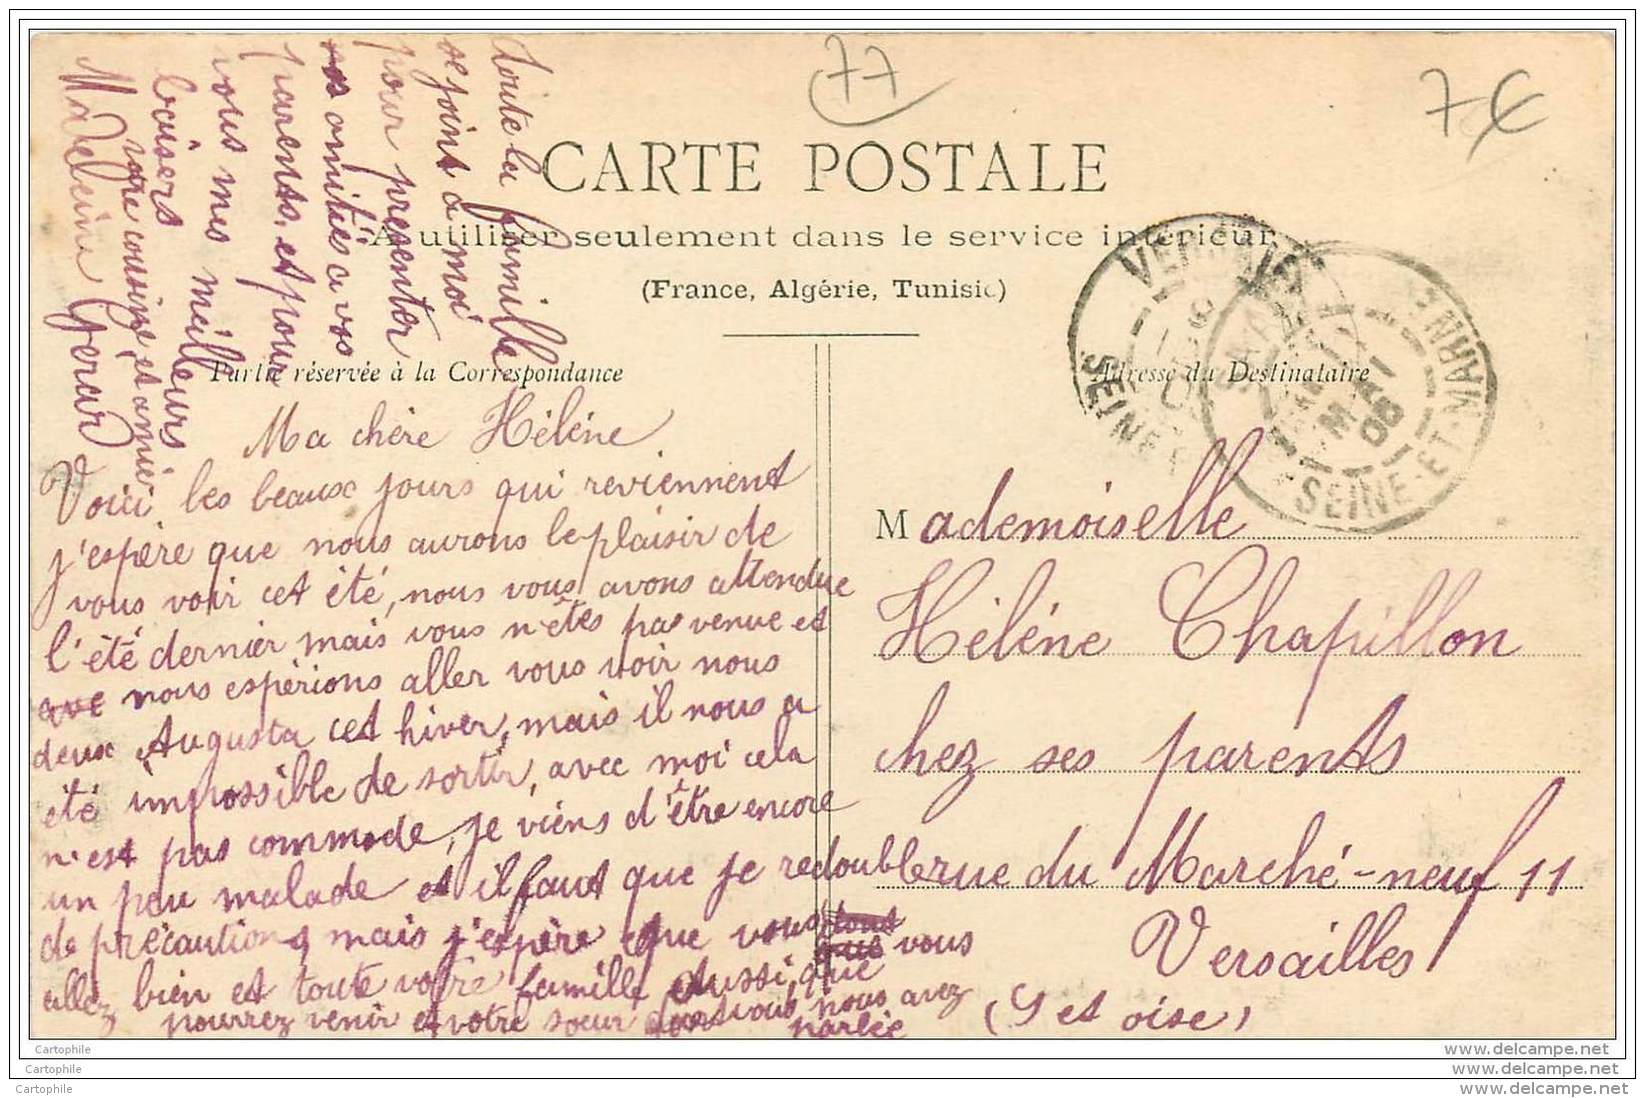 77
7€
CARTE POSTALE
A utiliser seulement dans le service intérieur
(France, Algérie, Tunisie)
Partie réservée à la Correspondance
Adresse du Destinataire
MAI
06
SEINE-ET-MARNE
Ma chère Hélène
Voici les beaux jours qui reviennent
j'espère que nous aurons le plaisir de
vous voir cet été, nous vous avons attendue
l'été dernier mais vous n'êtes pas venue et
ave nous espérions aller vous voir nous
deux Augusta cet hiver, mais il nous a
été impossible de sortir, avec moi cela
n'est pas commode, je viens d'être encore
un peu malade et il faut que je redouble
de précautions, mais j'espère que vous tous
que vous
allez bien et toute votre famille aussi, que
pourrez venir et votre sœur dont vous nous avez
parlée
Toute la famille
se joint à moi
pour presenter
nos amitiés a vos
parents, et pour
vous mes meilleurs
baisers
votre cousine et amie
Madeleine Gerard
Mademoiselle
Hélène Chapillon
chez ses parents
rue du Marché-neuf 11
Versailles
(S et oise)
Cartophile
www.delcampe.net
Cartophile
www.delcampe.net
Cartophile
www.delcampe.net